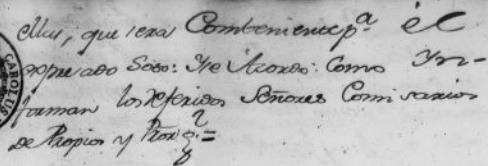 ellas, que sera Combeniente pª el
expresado Soto: Se Acordo: Como Yn-
forman los referidos Señores Comisarios
de Propios y
CAROLUS